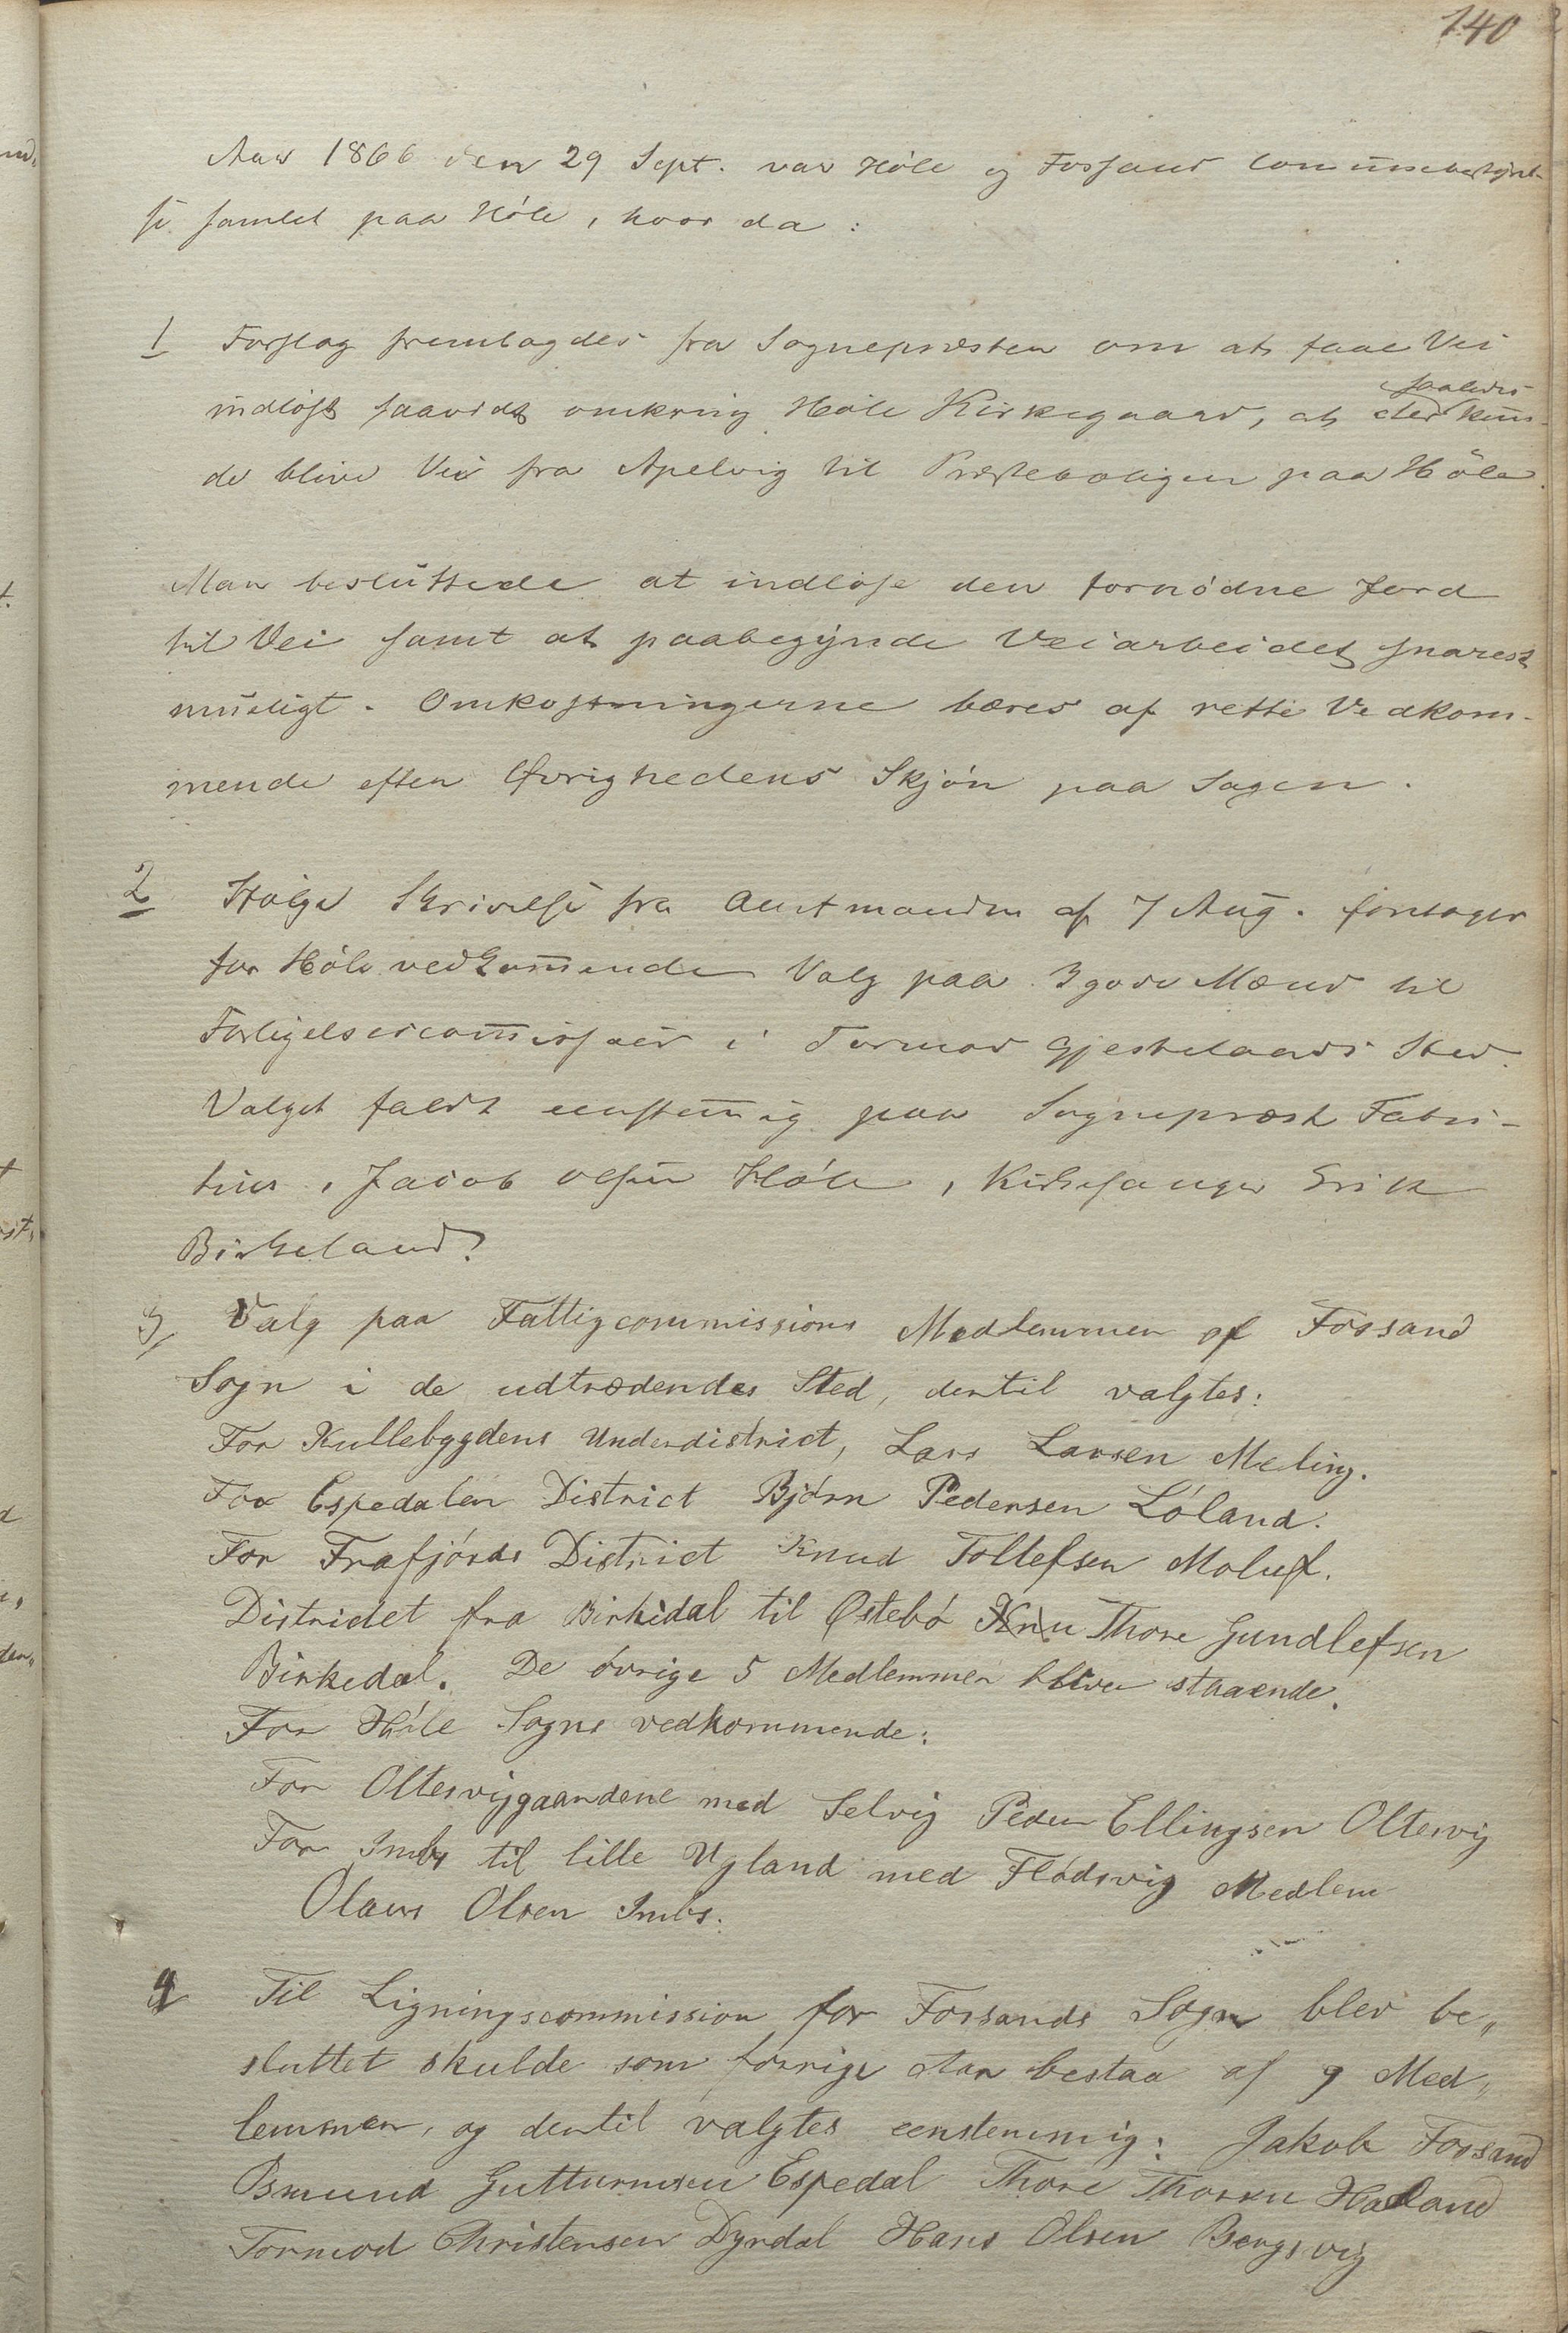 140
Aar 1866 den 29 Sept. var Höle og Fossand Communebestyrel-
se samlet paa Höle, hvor da:
1 Forslag fremlagdes fra Sognepræsten om at faae Vei
indløst saavidt omkring Höle Kirkegaard, at der saaledes kun-
de blive Vei fra Apelvig til Præsteboligen paa Höle.
Man besluttede at indløse den fornødne Jord
til Vei samt at paabegynde Veiarbeidet snarest
muligt. Omkostningerne bæres af rette Vedkom-
mende efter Øvrighedens Skjön paa Sagen.
2 Ifølge Skrivelse fra Amtmanden af 7 Aug. foretoges
for Höle vedkommende Valg paa 3 gode Mænd til
Forligelsescommissair i Tormod Gjeskelands Sted.
Valget faldt eenstemmig paa Sognepræst Fabri-
tius, Jacob Olsen Höle, Kirkesanger Erik
Birkeland.
3, Valg paa Fattigcommissions Medlemmer af Fossand
Sogn i de udtrædendes Sted, dertil valgtes:
For Kullebygdens Underdistrict, Lars Larsen Meling.
For Espedalen District Björn Pedersen Löland.
For Frafjörds District Knud Tollefsen Moluf.
Districtet fra Birkidal til Østebö Knu Thore Gundlefsen
Birkedal. De övrige 5 Medlemmer bliver staaende.
For Höle Sogns vedkommende:
For Oltesviggaardene med Selvig Peder Ellingsen Oltesvig
For Imbs til lille Ugland med Flödsvig Medlem
Olaus Olsen Imbs.
4 Til Ligningscommission for Fossands Sogn blev be„
sluttet skulde som forrige Aar bestaa af 9 Med„
lemmer, og dertil valgtes eenstemmig: Jakob Fossand
Osmund Gutturmsen Espedal Thore Haaland
Tormod Christensen Dyrdal Hans Olsen Bergsvig